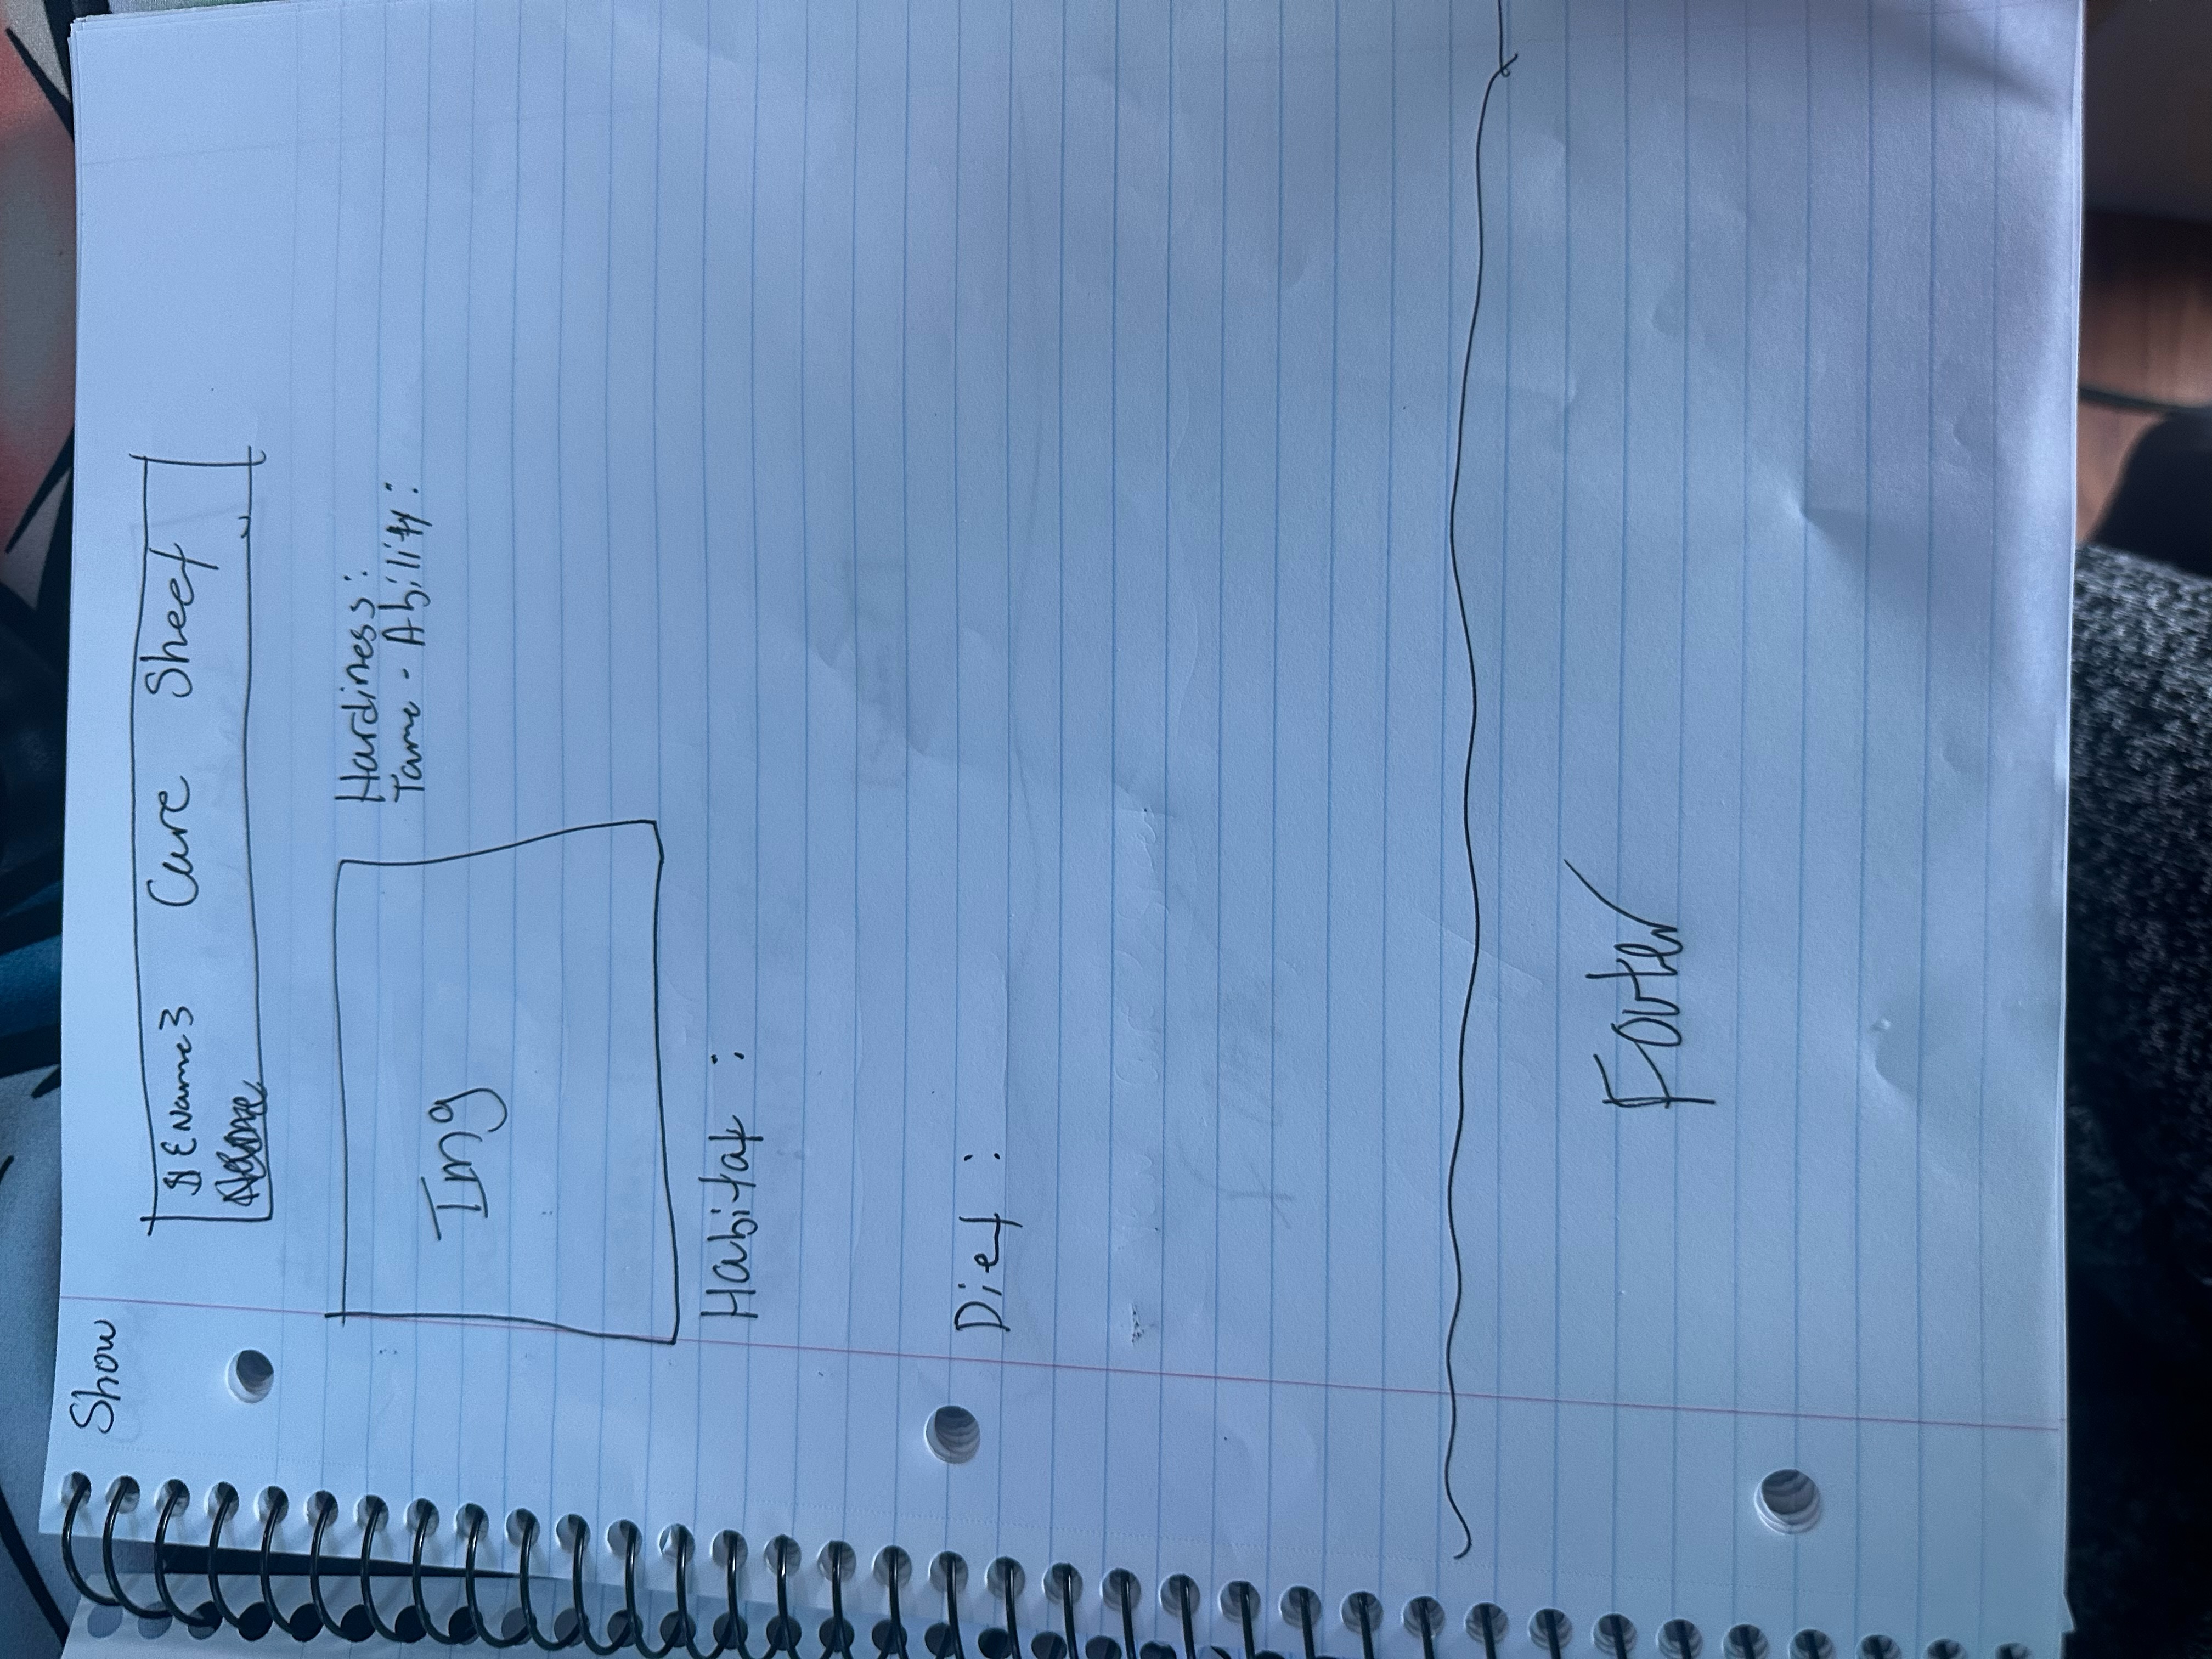 Show
${Name} Care Sheet
Img
Hardiness:
Tame - Ability:
Habitat :
Diet :
Footer